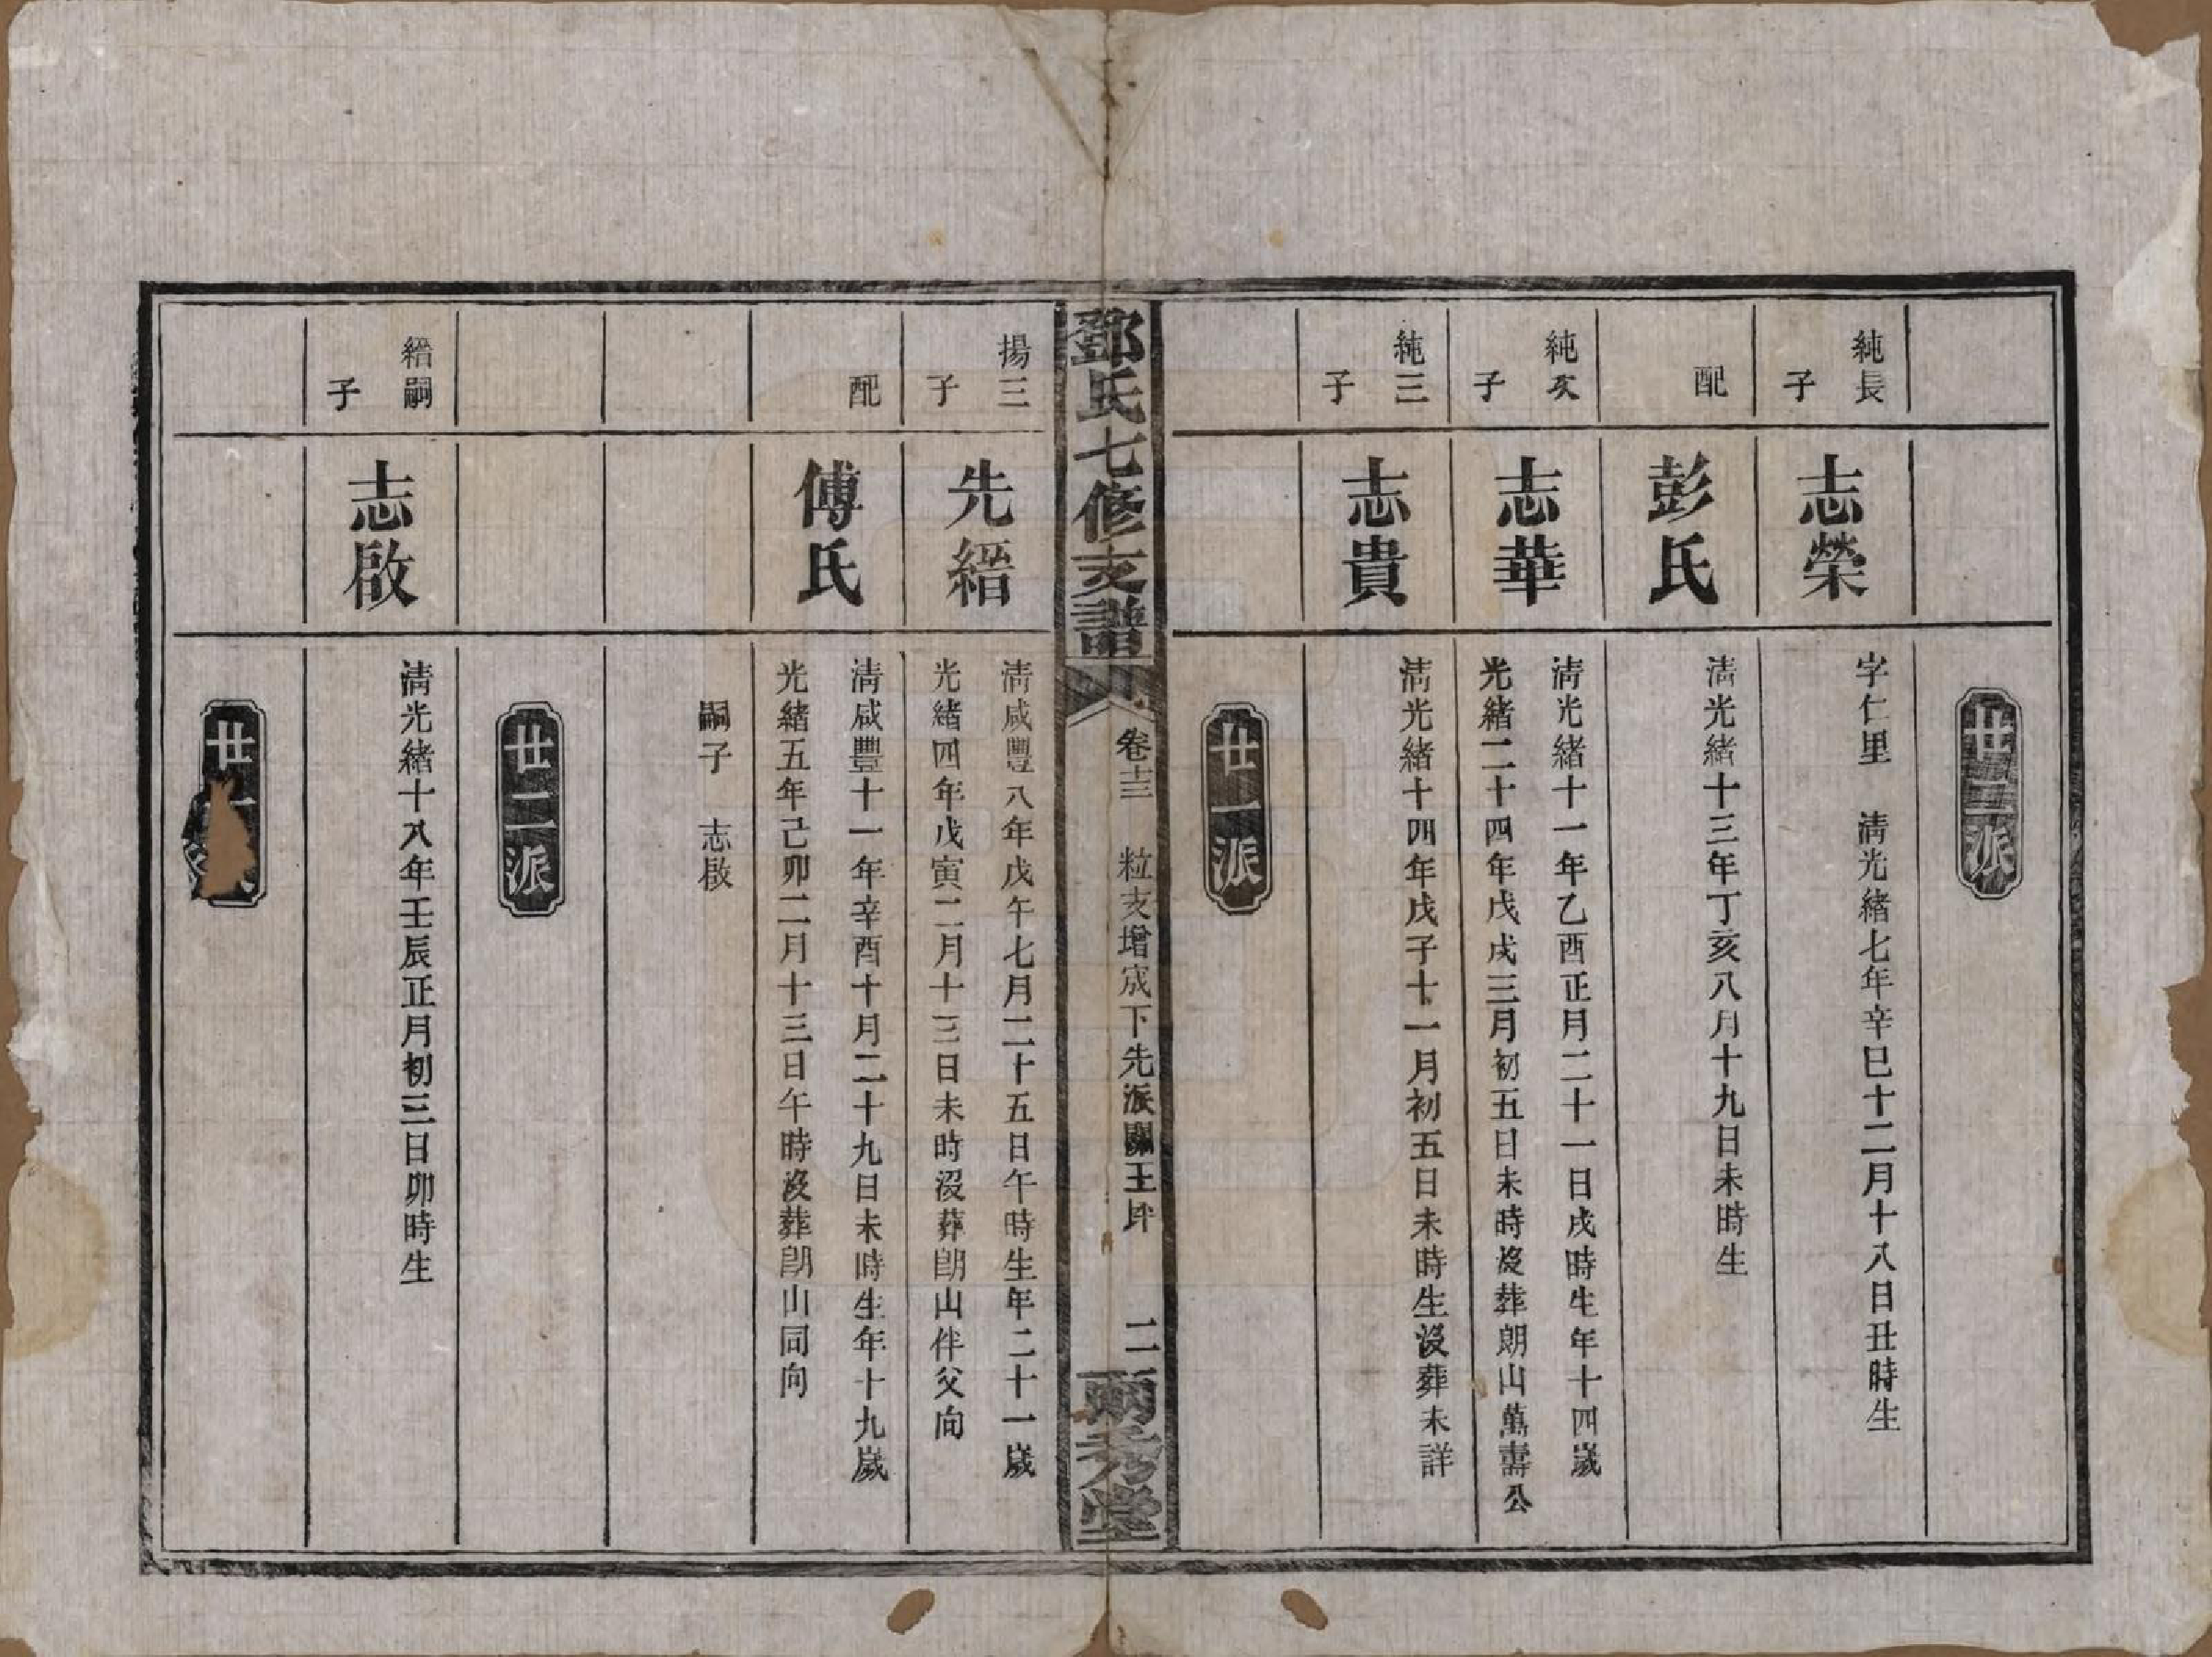 廿二派
純長子
志榮
字仁里　淸光緒七年辛巳十二月十八日丑時生
配
彭氏
淸光緒十三年丁亥八月十九日未時生
純次子
志華
淸光緒十一年乙酉正月二十一日戌時生年十四歲
光緒二十四年戊戌三月初五日未時沒葬朗山萬壽公
純三子
志貴
淸光緒十四年戊子十一月初五日未時生沒葬未詳
廿一派
鄧氏七修支譜
卷十三　粒支增宬下先派關王坪　二
兩秀堂
揚三子
先縉
淸咸豐八年戊午七月二十五日午時生年二十一歲
光緒四年戊寅二月十三日未時沒葬朗山伴父向
配
傅氏
淸咸豐十一年辛酉十月二十九日未時生年十九歲
光緒五年己卯二月十三日午時沒葬朗山同向
嗣子　志啟
廿二派
縉嗣子
志啟
淸光緒十八年壬辰正月初三日卯時生
廿